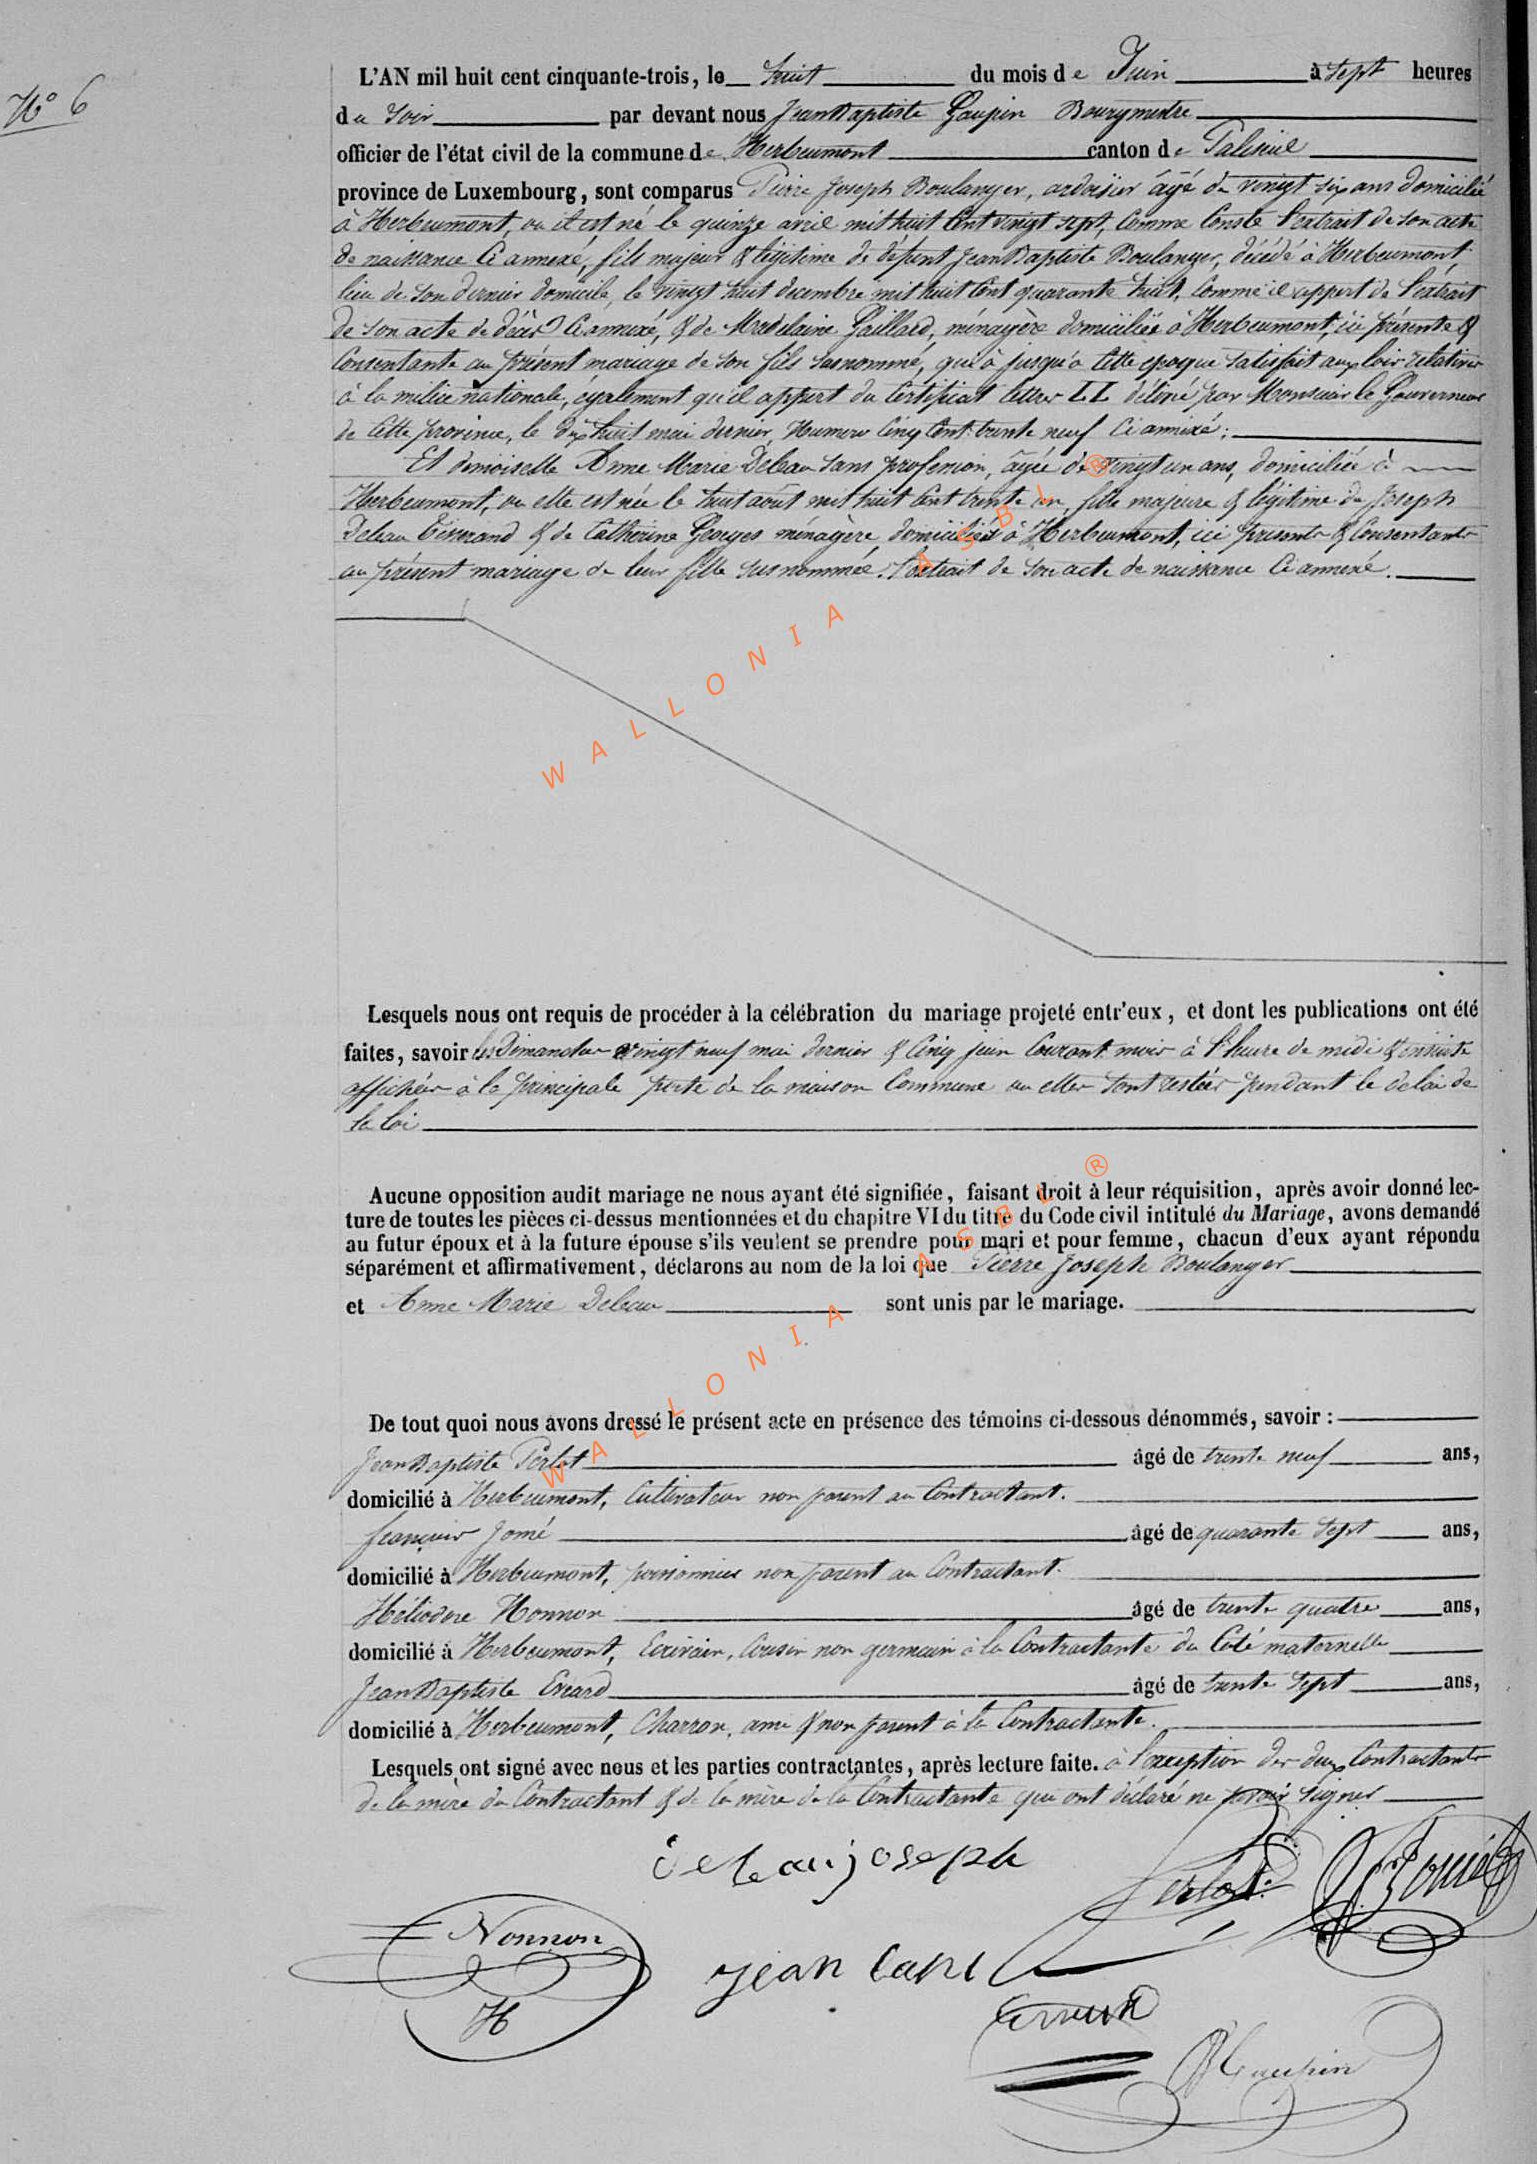 N° 6
L'AN mil huit cent cinquante-trois, le huit du mois de Juin à sept heures
du soir par devant nous Jean Baptiste Gaupin Bourgmestre
officier de l'état civil de la commune de Herbeumont canton de Paliseul
province de Luxembourg, sont comparus Pierre Joseph Boulanger, ardoisier âgé de vingt six ans domicilié
à Herbeumont, ou il est né le quinze avril mil huit Cent vingt sept, Comme Conste l'extrait de son acte
de naissance Ci annexé, fils majeur & légitime de défunt Jean Baptiste Boulanger, décédé à Herbeumont,
lieu de son dernier domicile, le vingt huit decembre mil huit Cent quarante huit, Comme il appert de l'extrait
de son acte de décès Ci annexé, & de Madelaine Gaillard, ménagère domiciliée à Herbeumont, ici présente &
Consentante au présent mariage de son fils susnommé, qui à jusqu'à Cette epoque satisfait aux loix relatives
à la milice nationale, également qu'il appert du Certificat lettres LL délivré par Monsieur le Gouverneur
de Cette province, le dix huit mai dernier, Numero Cinq Cent trente neuf Ci annexé;
Et demoiselle Anne Marie Deleau sans profession, âgée de vingt un ans, domiciliée à
Herbeumont, ou elle est née le huit août mil huit Cent trente un, fille majeure & légitime de Joseph
Deleau & de Catherine Georges ménagère, domiciliés à Herbeumont, ici présents & Consentants
au présent mariage de leur fille susnommée. L'extrait de son acte de naissance Ci annexé.
Lesquels nous ont requis de procéder à la célébration du mariage projeté entr'eux, et dont les publications ont été
faites, savoir les Dimanches vingt neuf mai dernier & Cinq juin Courant mois à l'heure de midi & ensuite
affichées à la principale porte de la maison Commune ou elles sont restées pendant le delai de
la loi
Aucune opposition audit mariage ne nous ayant été signifiée, faisant droit à leur réquisition, après avoir donné lec-
ture de toutes les pièces ci-dessus mentionnées et du chapitre VI du titre du Code civil intitulé du Mariage, avons demandé
au futur époux et à la future épouse s'ils veulent se prendre pour mari et pour femme, chacun d'eux ayant répondu
séparément et affirmativement, déclarons au nom de la loi que Pierre Joseph Boulanger
et Anne Marie Deleau sont unis par le mariage.
De tout quoi nous avons dressé le présent acte en présence des témoins ci-dessous dénommés, savoir :
Jean Baptiste Perlot âgé de trente neuf ans,
domicilié à Herbeumont, Cultivateur non parent au Contractant.
François Jomé âgé de quarante sept ans,
domicilié à Herbeumont, non parent au Contractant.
Héliodore Nonnon âgé de trente quatre ans,
domicilié à Herbeumont, Ecrivain, Cousin non germain à la Contractante du Coté maternelle
Jean Baptiste Evrard âgé de trente sept ans,
domicilié à Herbeumont, Charron, ami & non parent à la Contractante.
Lesquels ont signé avec nous et les parties contractantes, après lecture faite. à l'exception des deux Contractants
de la mère du Contractant & de la mère de la Contractante qui ont déclaré ne savoir signer
deleau joseph
Perlot
Nonnon
H
Jean
Gaupin
WALLONIA ASBL ®
WALLONIA ASBL ®